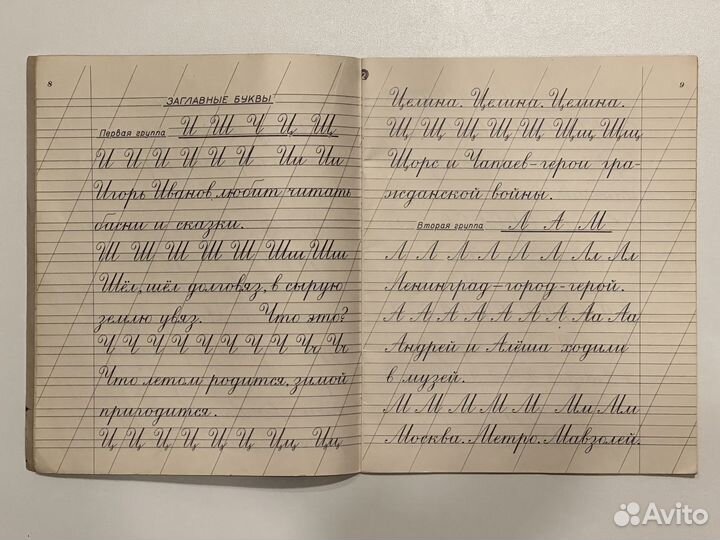 8
ЗАГЛАВНЫЕ БУКВЫ
Первая группа И Ш Ч Ц Щ
И И И И И И И Ии Ии
Игорь Иванов любит читать
басни и сказки.
Ш Ш Ш Ш Ш Шш Шш
Шёл, шёл долговяз, в сырую
землю увяз. Что это?
Ч Ч Ч Ч Ч Ч Ч Ч Ч Чч Чч
Что летом родится, зимой
пригодится.
Ц Ц Ц Ц Ц Ц Цц Цц
9
Целина. Целина. Целина.
Щ Щ Щ Щ Щ Щщ Щщ
Щорс и Чапаев-герои гра-
жданской войны.
Вторая группа Л А М
Л Л Л Л Л Л Лл Лл
Ленинград-город-герой.
А А А А А А А Аа Аа
Андрей и Алёша ходили
в музей.
М М М М М Мм Мм
Москва. Метро. Мавзолей.
Avito